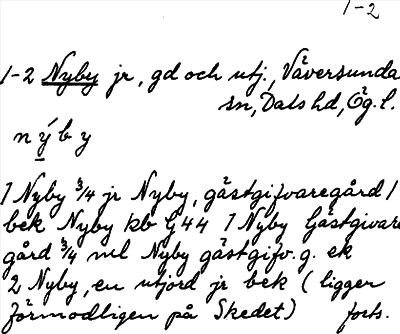 1-2
1-2 Nyby jr, gd och utj., Väversunda
sn, Dals hd, Ög. l.
nýby
1 Nyby 3/4 jr Nyby, gästgifvaregård 1
bek Nyby kb G44 1 Nyby Gästgivare
gård 3/4 ml Nyby gästgifv. g. ek
2 Nyby, en utjord jr bek (ligger
förmodligen på Skedet) forts.